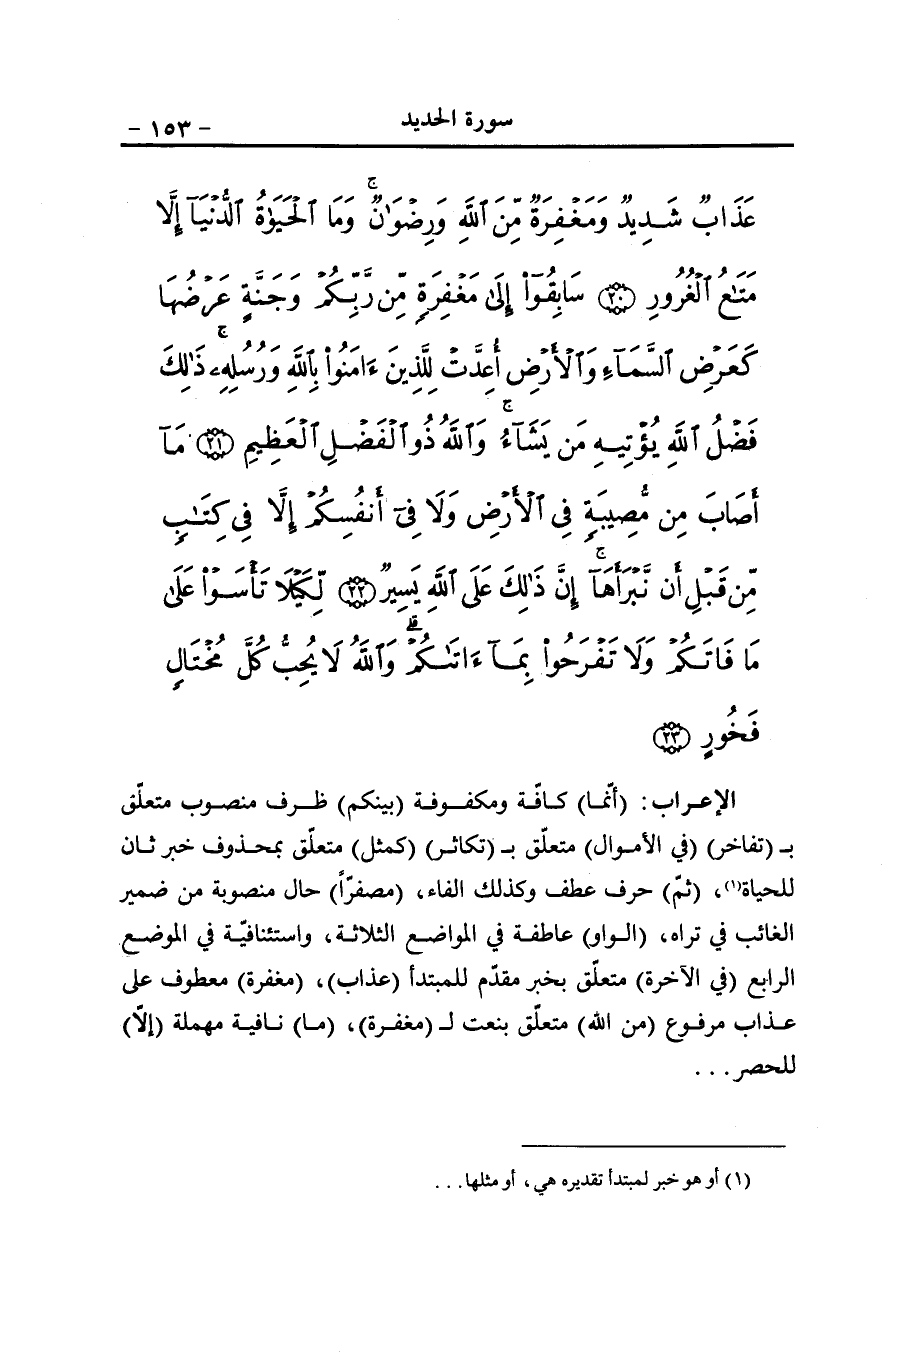 سورة الحديد - ١٥٣ -
عَذَابٌ شَدِيدٌ وَمَغْفِرَةٌ مِّنَ ٱللَّهِ وَرِضْوَٰنٌ ۚ وَمَا ٱلْحَيَوٰةُ ٱلدُّنْيَآ إِلَّا
مَتَٰعُ ٱلْغُرُورِ ﴿٢٠﴾ سَابِقُوٓا۟ إِلَىٰ مَغْفِرَةٍ مِّن رَّبِّكُمْ وَجَنَّةٍ عَرْضُهَا
كَعَرْضِ ٱلسَّمَآءِ وَٱلْأَرْضِ أُعِدَّتْ لِلَّذِينَ ءَامَنُوا۟ بِٱللَّهِ وَرُسُلِهِۦ ۚ ذَٰلِكَ
فَضْلُ ٱللَّهِ يُؤْتِيهِ مَن يَشَآءُ ۚ وَٱللَّهُ ذُو ٱلْفَضْلِ ٱلْعَظِيمِ ﴿٢١﴾ مَآ
أَصَابَ مِن مُّصِيبَةٍ فِى ٱلْأَرْضِ وَلَا فِىٓ أَنفُسِكُمْ إِلَّا فِى كِتَٰبٍ
مِّن قَبْلِ أَن نَّبْرَأَهَآ ۚ إِنَّ ذَٰلِكَ عَلَى ٱللَّهِ يَسِيرٌ ﴿٢٢﴾ لِّكَيْلَا تَأْسَوْا۟ عَلَىٰ
مَا فَاتَكُمْ وَلَا تَفْرَحُوا۟ بِمَآ ءَاتَىٰكُمْ ۗ وَٱللَّهُ لَا يُحِبُّ كُلَّ مُخْتَالٍ
فَخُورٍ ﴿٢٣﴾
الإعراب: (أنّما) كافّة ومكفوفة (بينكم) ظرف منصوب متعلّق
بـ (تفاخر) (في الأموال) متعلّق بـ (تكاثر) (كمثل) متعلّق بمحذوف خبر ثان
للحياة(١)، (ثمّ) حرف عطف وكذلك الفاء، (مصفرّاً) حال منصوبة من ضمير
الغائب في تراه، (الواو) عاطفة في المواضع الثلاثة، واستئنافيّة في الموضع
الرابع (في الآخرة) متعلّق بخبر مقدّم للمبتدأ (عذاب)، (مغفرة) معطوف على
عذاب مرفوع (من الله) متعلّق بنعت لـ (مغفرة)، (ما) نافية مهملة (إلّا)
للحصر...
(١) أو هو خبر لمبتدأ تقديره هي، أو مثلها...